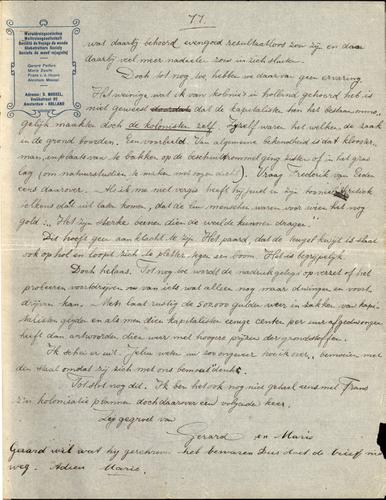 Wereldreisgezelschap
Weltreisegesellschaft
Société du voyage du monde
Globetrotters Society
Gerard Perfors
Marie Zwarts
Frans v. d. Hoorn
Abraham Mossel
Adresse: D. MOSSEL,
Amsterdam - HOLLAND
77.
wat daarbij behoord evengoed resultaatloos zou zijn en daar
daarbij veel meer nadeelen zou in zich sluiten.
Doch tot nog toe hebben we daarvan geen ervaring
Het weinige wat ik van kolonies in holland gehoord heb is
niet geweest doordat dat de kapitalisten hun het bestaan onmo-
gelijk maakten doch de kolonisten zelf. Zijzelf waren het welken de zaak
in de grond boorden. Een voorbeeld. Van algemeene bekendheid is dat klooster-
man, inplaats van te bakken, op de zitten of in het gras
lag (om natuurstudies te maken met oogen dicht). Vraag Frederik van Eeden
eens daarover. Als ik me niet vergis heeft hij juist in zijn
telkens dit uit laten komen, dat de menschen waren voor wien het nog
gold: "Het zijn sterke beenen die de weelde kunnen dragen"
Dit hoeft geen aanklacht te zijn. Het paard, dat de teugel kwijt is slaat
ook op hol en loopt zich te pletter tegen een boom. Het is begrijpelijk.
Doch helaas. Tot nog toe wordt de nadruk gelegd op verzet of het
probeeren voortdrijven van iets wat alleen nog maar dwingen en voort-
drijven kan. Men laat rustig de 50.000 gulden weer in zakken van kapi-
talisten glijden en als men dien kapitalisten eenige center per uur afgedwongen
heeft dan antwoorden die weer met hoogere prijzen der grondstoffen.
Ik schei er uit. Jullie weten nu zoo ongeveer hoe ik over "bemoeien met
den staat omdat zij zich met ons bemoeit" denk.
Tot slot nog dit. Ik ben het ook nog niet geheel eens met Frans
z'n kolonisatie plannen doch daarover een volgende keer.
Zeg gegroet van
Gerard en Marie
Gerard wil wat hij geschreven het bewaren dus doet de brief niet
weg. Adieu Marie.